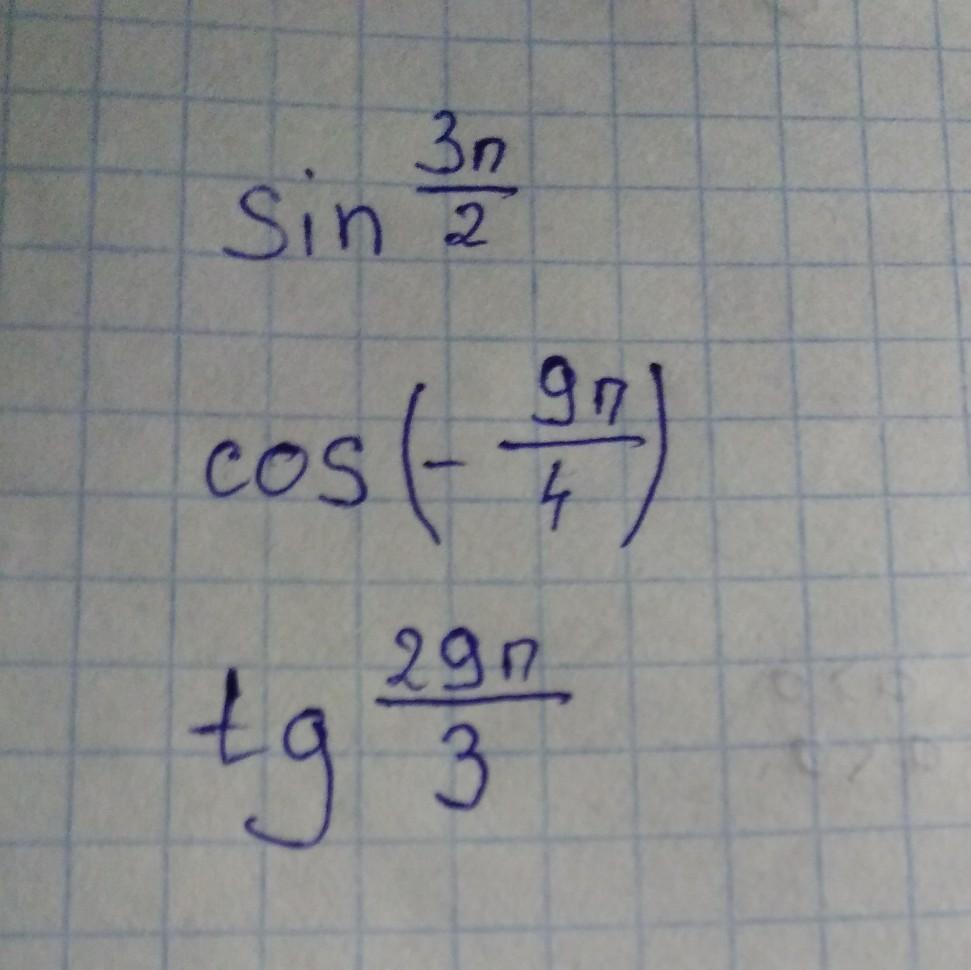 sin 3π/2
cos (- 9π/4)
tg 29π/3